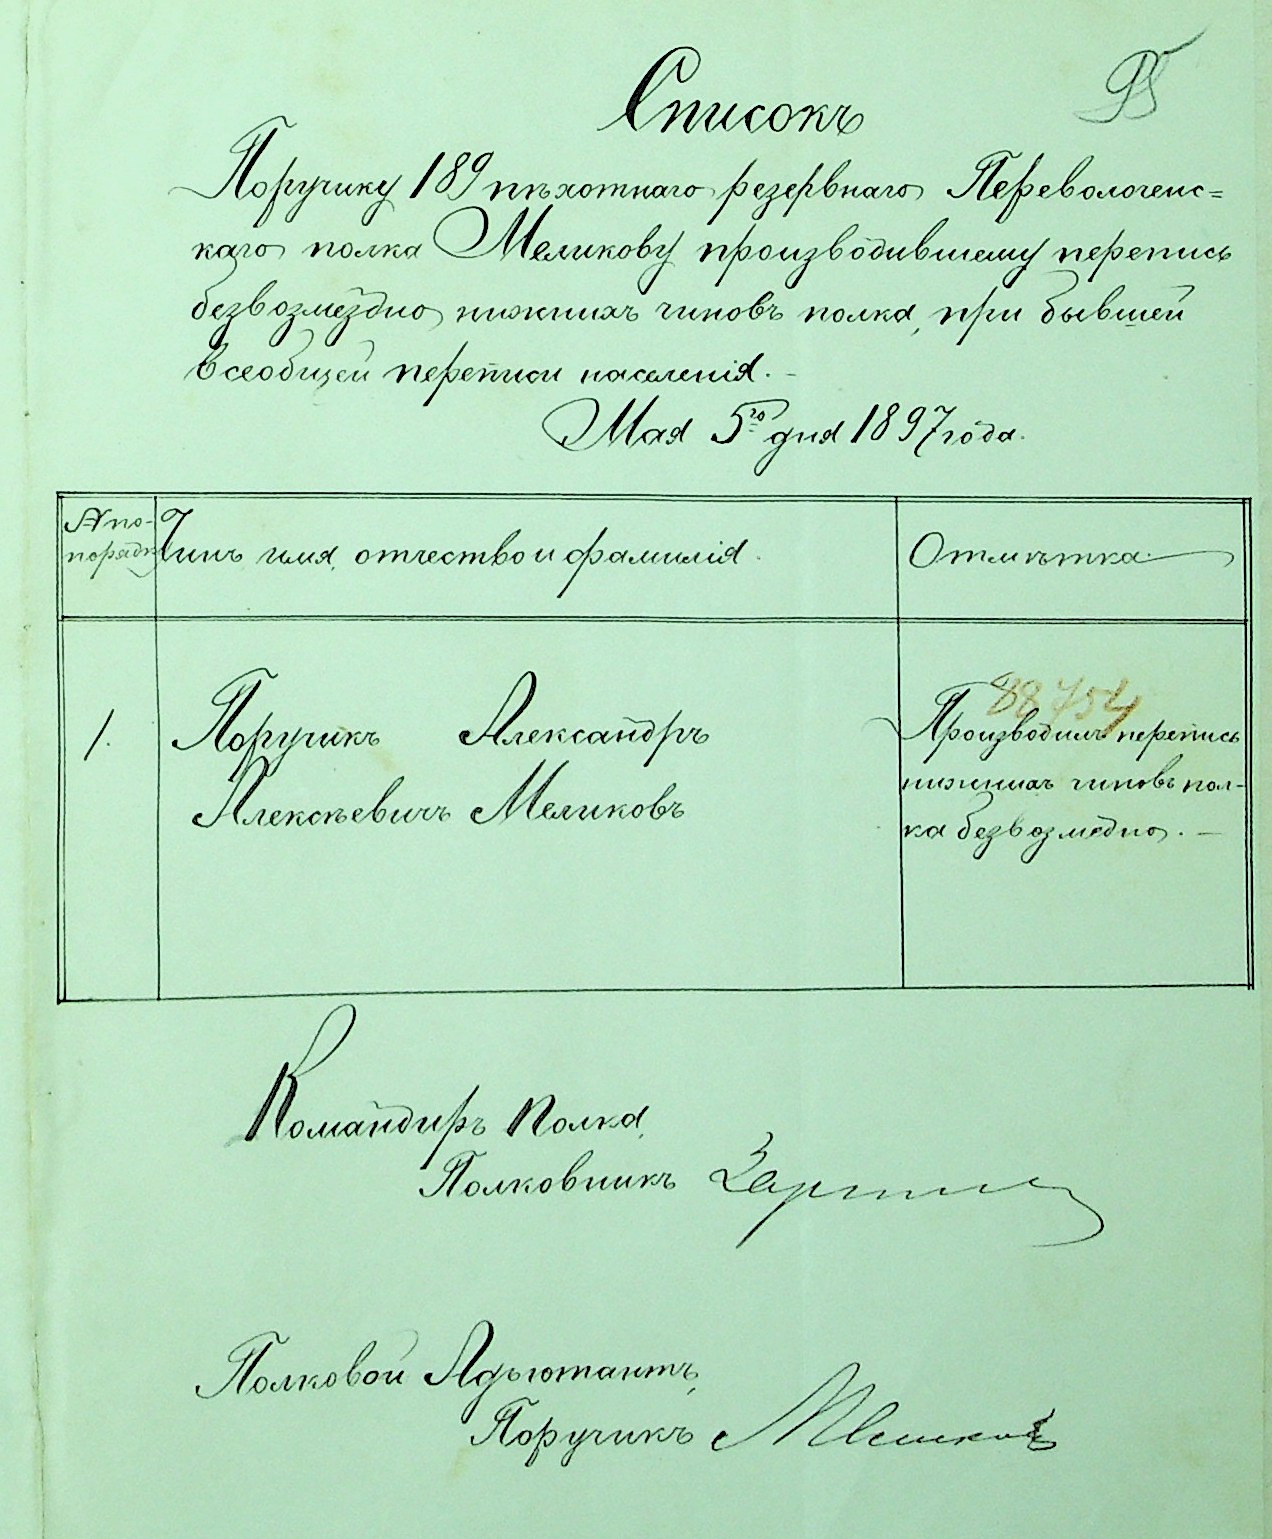 Списокъ
Поручику 189 пѣхотнаго резервнаго Переволоченс=
каго полка Меликову производившему перепись
безвозмездно нижнихъ чиновъ полка, при бывшей
всеобщей переписи населенія. –
Мая 5го дня 1897 года.
№ по-
порядку
Чинъ имя, отчество и фамилія.
Отмѣтка
88754
1.
Поручикъ Александръ
Алексѣевичъ Меликовъ
Производилъ перепись
нижнихъ чиновъ пол-
ка безвозмедно. –
Командиръ полка,
Полковникъ
Полковой Адъютантъ,
Поручикъ Меликовъ